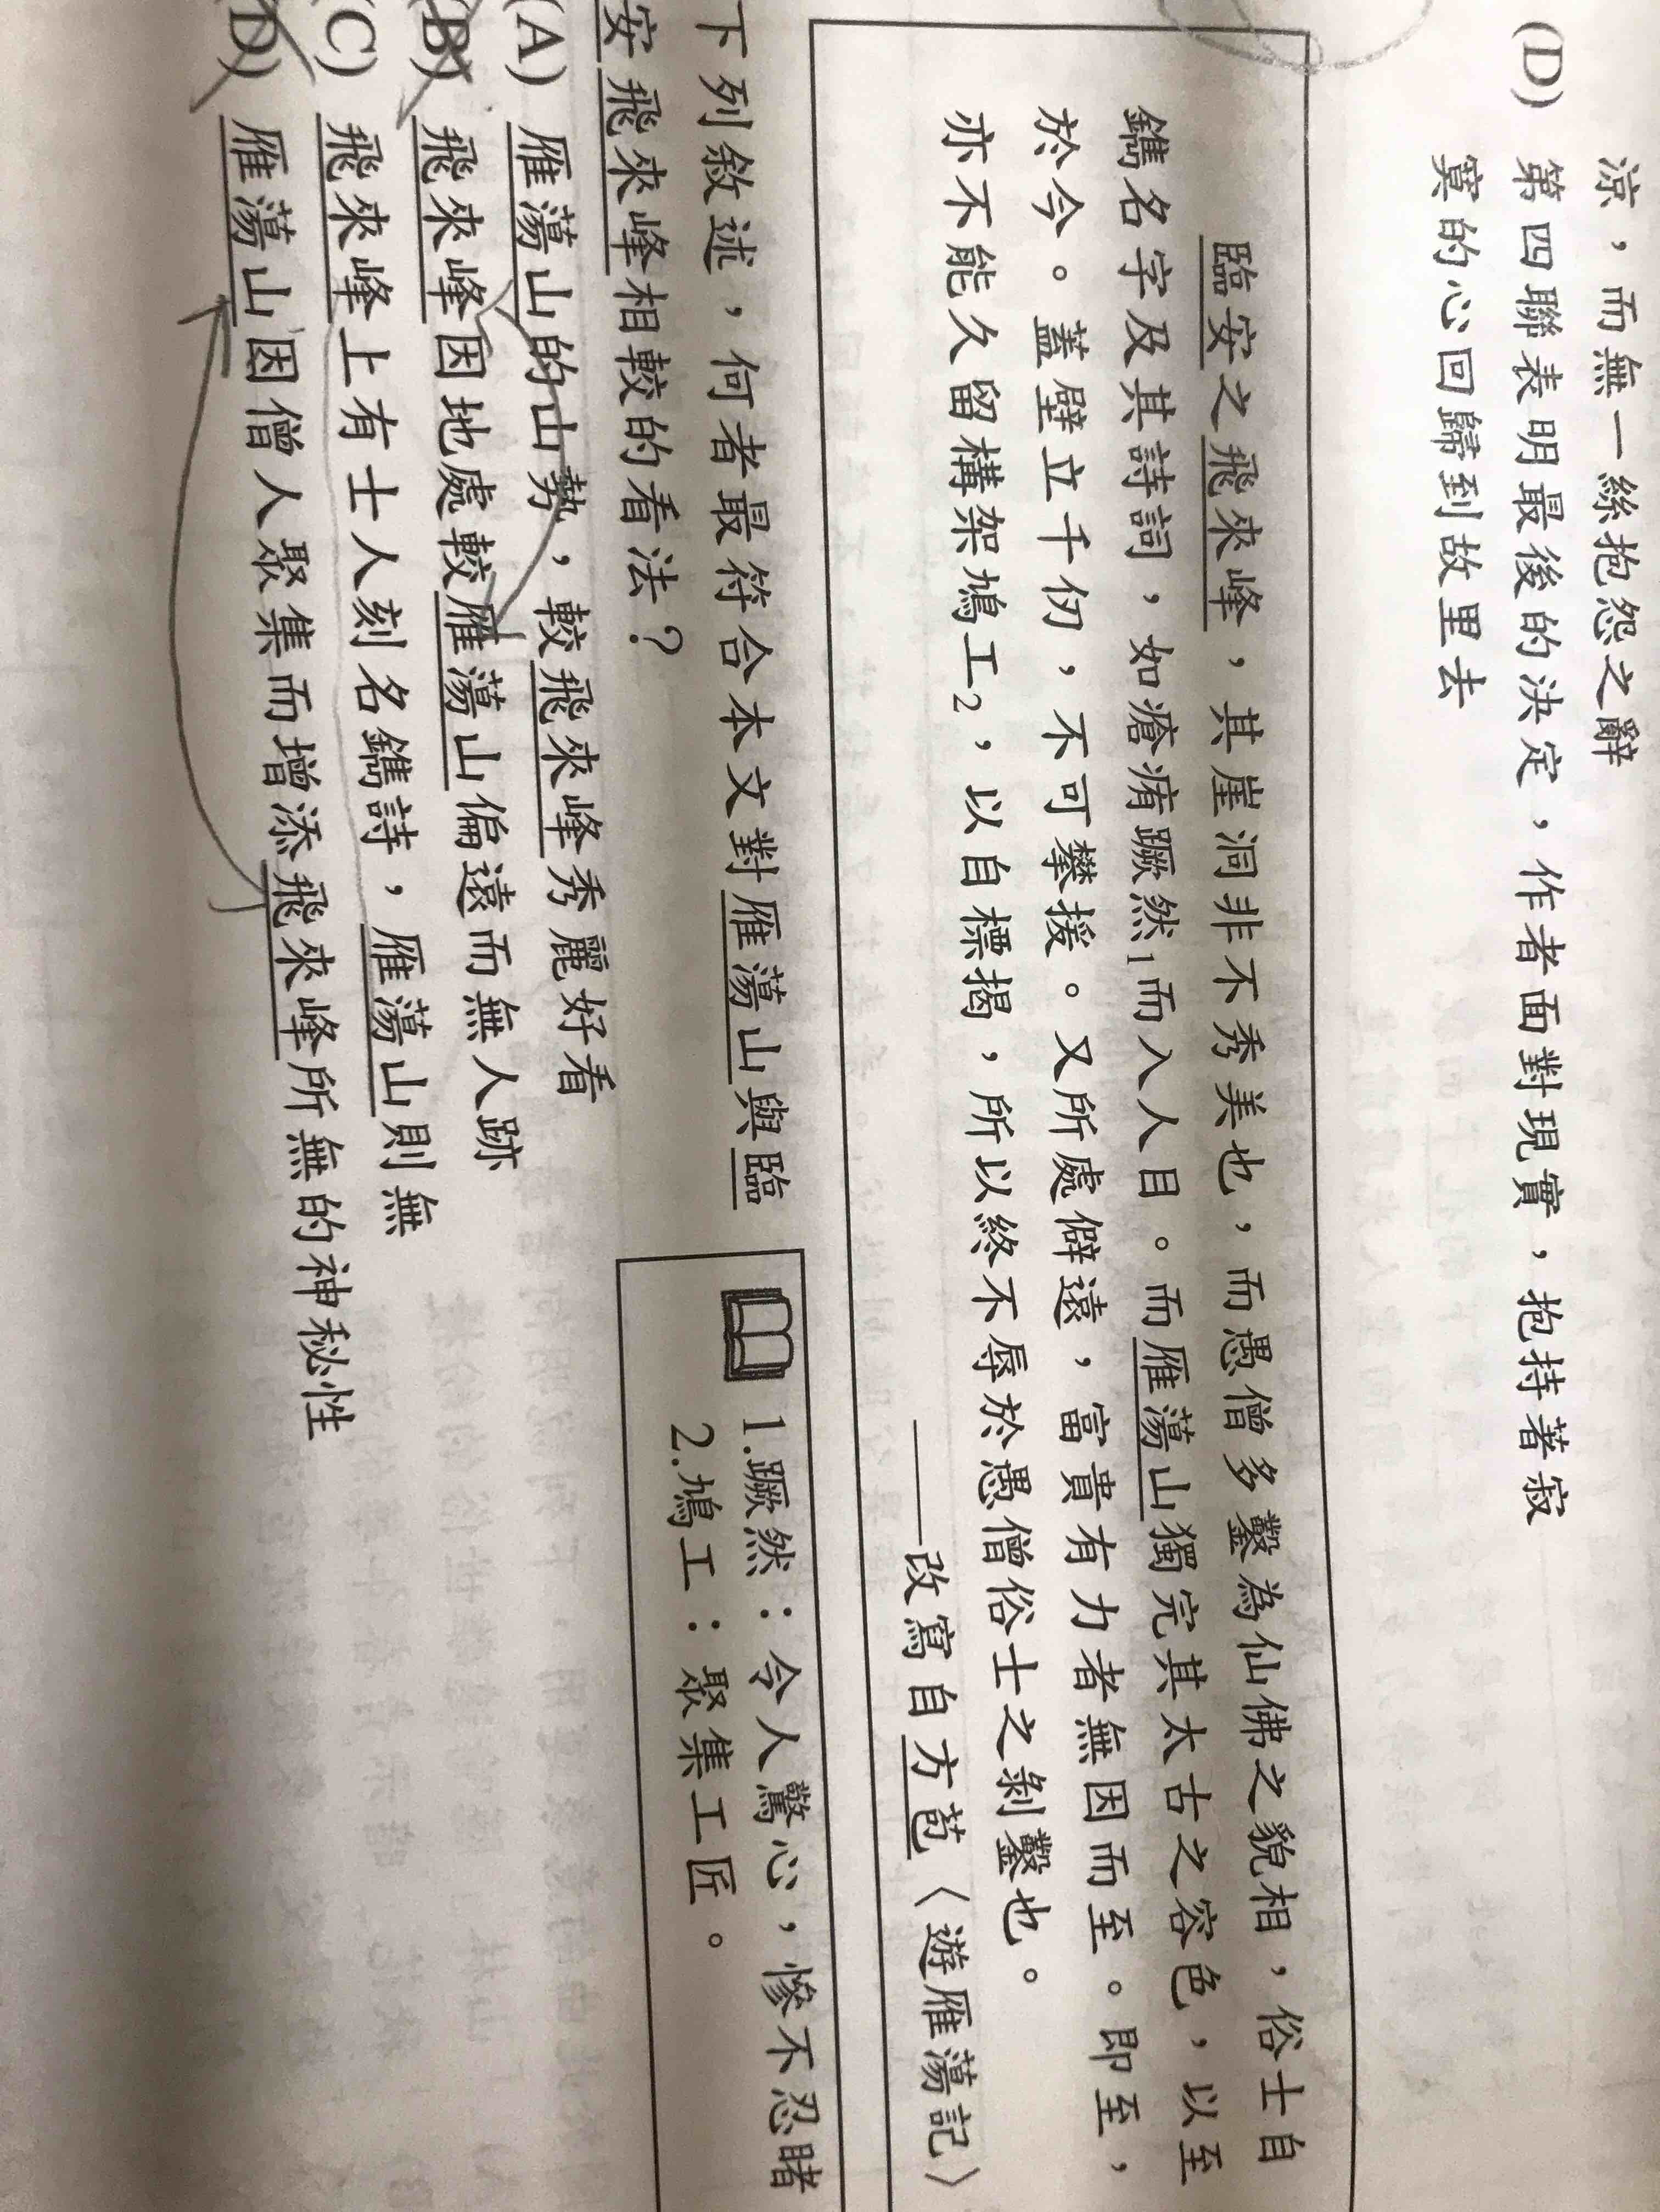 涼，而無一絲抱怨之辭
(D) 第四聯表明最後的決定，作者面對現實，抱持著寂
寞的心回歸到故里去
臨安之飛來峰，其崖洞非不秀美也，而愚僧多鑿為仙佛之貌相，俗士自
鐫名字及其詩詞，如瘡痏蹶然1而入人目。而雁蕩山獨完其太古之容色，以至
於今。蓋壁立千仞，不可攀援。又所處僻遠，富貴有力者無因而至。即至，
亦不能久留構架鳩工2，以自標揭，所以終不辱於愚僧俗士之剝鑿也。
——改寫自方苞〈遊雁蕩記〉
1.蹶然：令人驚心，慘不忍睹
2.鳩工：聚集工匠。
下列敘述，何者最符合本文對雁蕩山與臨
安飛來峰相較的看法？
(A) 雁蕩山的山勢，較飛來峰秀麗好看
(B) 飛來峰因地處較雁蕩山偏遠而無人跡
(C) 飛來峰上有士人刻名鐫詩，雁蕩山則無
(D) 雁蕩山因僧人聚集而增添飛來峰所無的神秘性